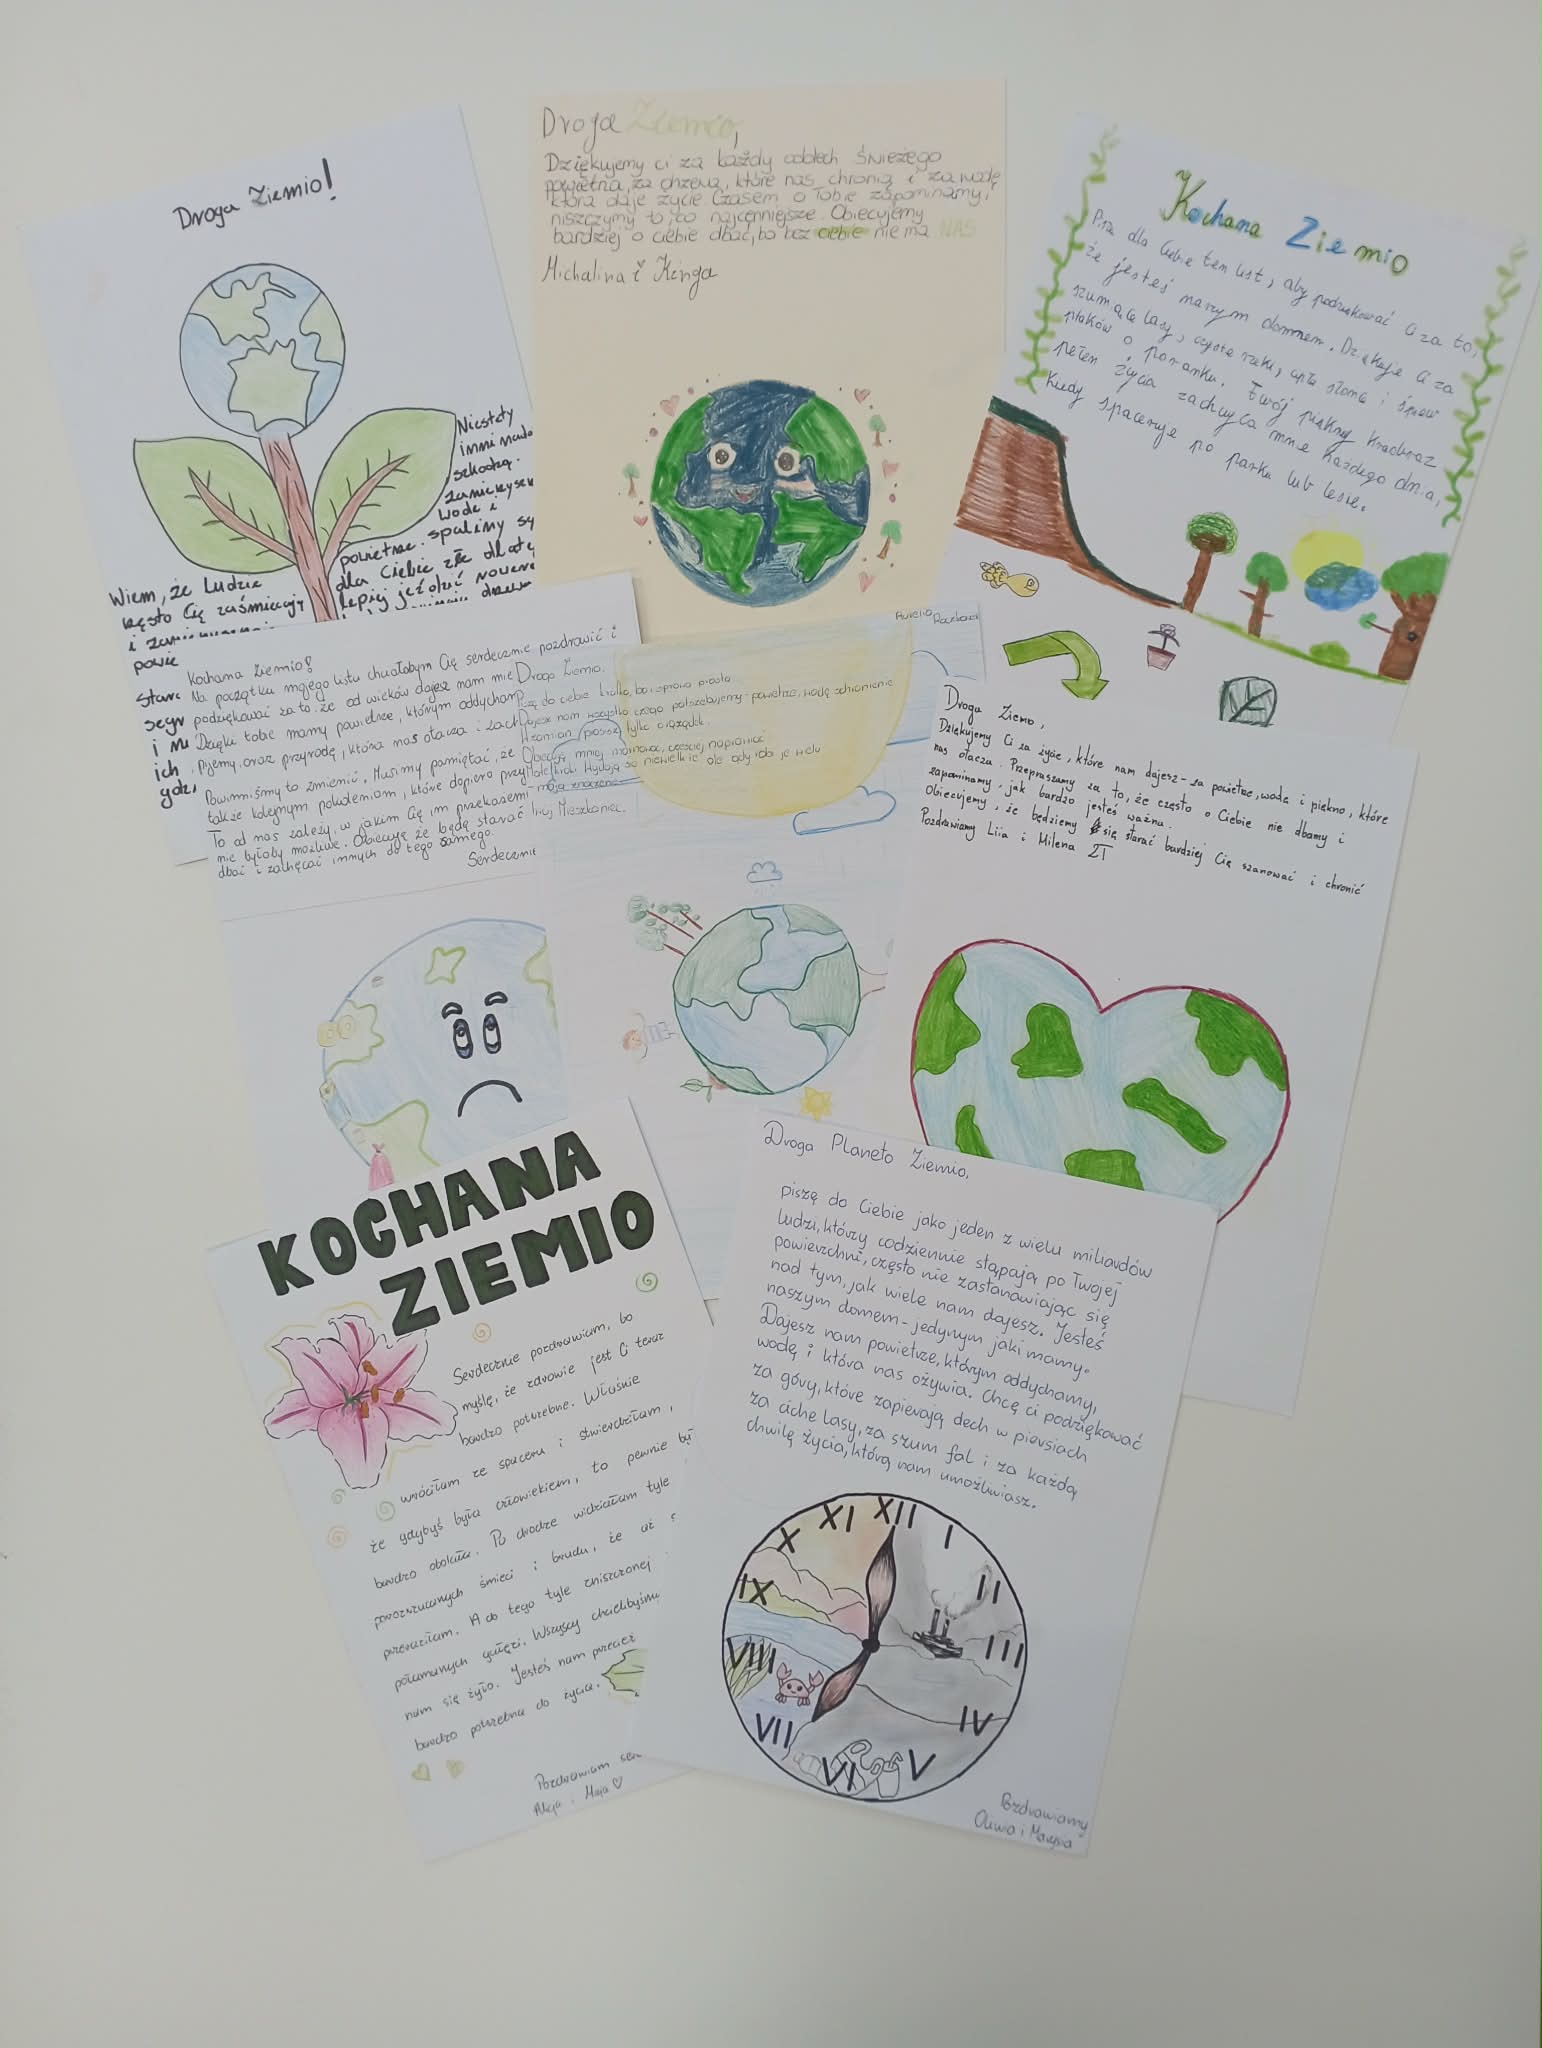 Droga Ziemio!
Niestety
inni
szkodzą.
wodę i
powietrze. spaliny
dla Ciebie złe
lepiej jeździć
Wiem, że ludzie
często Cię zaśmiecają
i
Droga Ziemio,
Dziękujemy ci za każdy oddech świeżego
powietrza, za drzewa, które nas chronią i za wodę,
która daje życie. Czasem o Tobie zapominamy,
niszczymy to co najcenniejsze. Obiecujemy
bardziej o ciebie dbać, bo bez ciebie nie ma NAS
Michalina i Kinga
Kochana Ziemio
Piszę dla Ciebie ten list, aby podziękować Ci za to,
że jesteś naszym domem. Dziękuję Ci za
szumiące lasy, czyste rzeki, ciepłe słońce i śpiew
ptaków o poranku. Twój piękny krajobraz
pełen życia zachwyca mnie każdego dnia,
kiedy spaceruję po parku lub lesie.
Kochana Ziemio!
Na początku mojego listu chciałabym Cię serdecznie pozdrowić i
podziękować za to, że od wieków dajesz nam
Dzięki tobie mamy powietrze, którym oddycham
pijemy, oraz przyrodę, która nas otacza i
Powinniśmy to zmienić. Musimy pamiętać, że
także kolejnym pokoleniom, które dopiero
To od nas zależy, w jakim Cię im przekażemy
nie byłoby możliwe. Obiecuję, że będę starać
dbać i zachęcać innych do tego samego.
Serdecznie
Droga Ziemio.
do ciebie krótko, bo sprawa prosta
Dajesz nam wszystko czego potrzebujemy - powietrze, wodę schronienie
W zamian prosisz tylko o rozsądek.
Obiecuję, mniej marnować, częściej naprawiać
kroki wydają się niewielkie ale gdy robi je wielu
- mają znaczenie
Twój Mieszkaniec.
Droga Ziemo,
Dziękujemy Ci za życie, które nam dajesz - za powietrze, wodę i piękno, które
nas otacza. Przepraszamy za to, że często o Ciebie nie dbamy i
zapominamy, jak bardzo jesteś ważna.
Obiecujemy, że będziemy się starać bardziej Cię szanować i chronić
Pozdrawiamy Liia i Milena 2T
KOCHANA
ZIEMIO
Serdecznie pozdrawiam, bo
myślę, że zdrowie jest Ci teraz
bardzo potrzebne. Właśnie
wróciłam ze spaceru i stwierdziłam,
że gdybyś była człowiekiem, to pewnie
bardzo obolała. Po drodze widziałam tyle
porozrzucanych śmieci i brudu, że aż
przeraziłam. A do tego tyle zniszczonej
połamanych gałęzi. Wszyscy chcielibyśmy
nam się żyło. Jesteś nam przecież
bardzo potrzebna do życia.
Pozdrawiam
Alicja i Maja
Droga Planeto Ziemio,
piszę do Ciebie jako jeden z wielu miliardów
ludzi, którzy codziennie stąpają po Twojej
powierzchni, często nie zastanawiając się
nad tym, jak wiele nam dajesz. Jesteś
naszym domem - jedynym jaki mamy.
Dajesz nam powietrze, którym oddychamy,
wodę i która nas ożywia. Chcę ci podziękować
za góry, które zapierają dech w piersiach
za ciche lasy, za szum fal i za każdą
chwilę życia, którą nam umożliwiasz.
XII
I
II
III
IV
V
VI
VII
VIII
IX
X
XI
Pozdrawiamy
Oliwia i Marysia